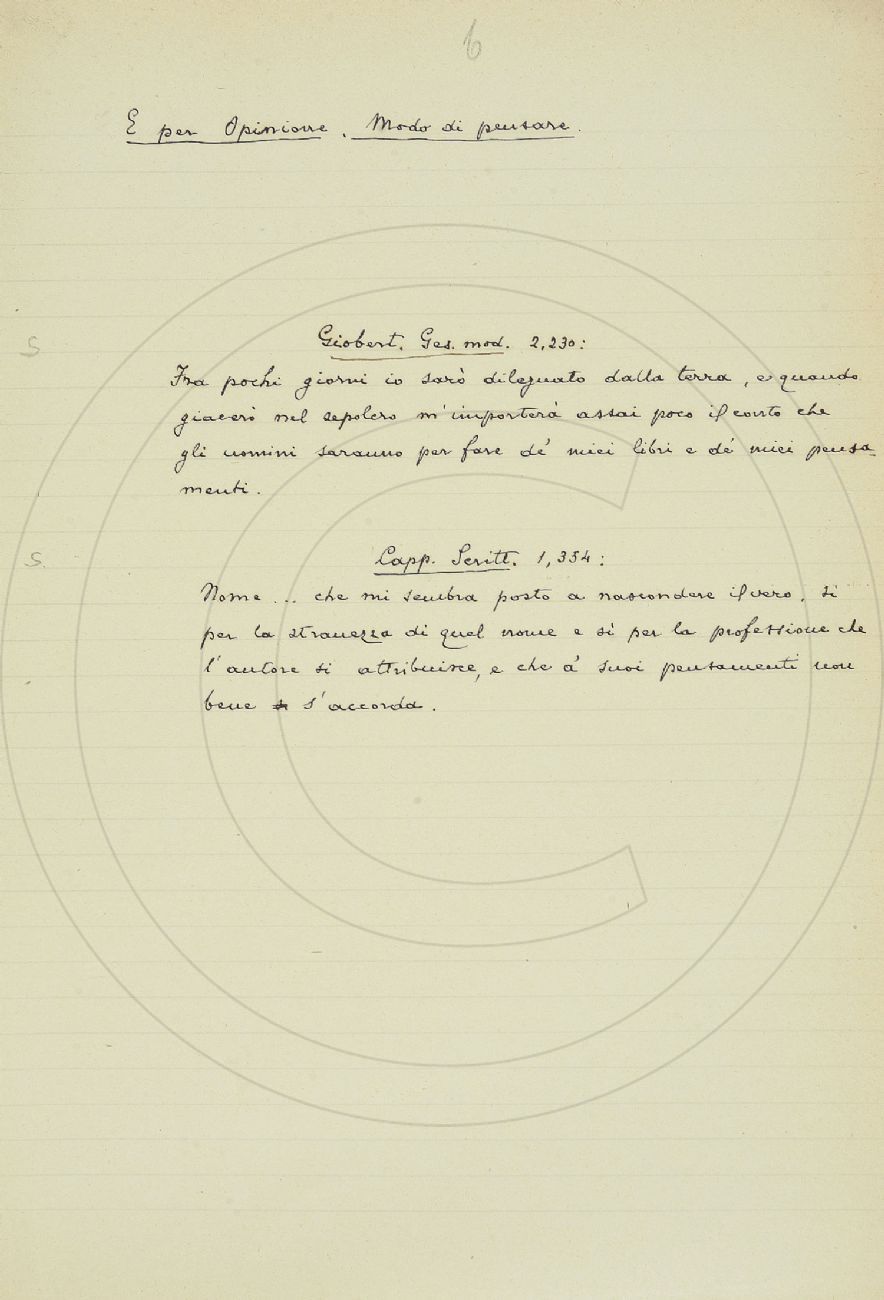 6
E per Opinione, Modo di pensare.
S
Giobert. Ges. mod. 2,230:
Fra pochi giorni io sarò dileguato dalla terra, e quando
giacerò nel sepolcro m'importerà assai poco il conto che
gli uomini saranno per fare de' miei libri e de' miei pensa-
menti.
S.
Capp. Scritt. 1,354:
Nome ... che mi sembra posto a nascondere il vero, sì
per la stranezza di quel nome e sì per la professione che
l'autore si attribuisce, e che a' suoi pensamenti non
bene s'accorda.